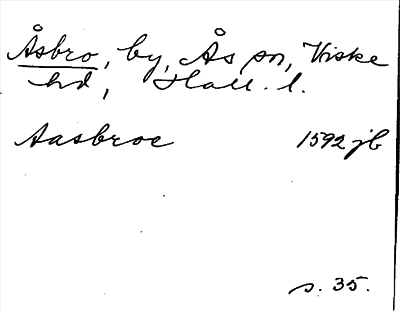 Åsbro, by, Ås sn, Viske
hd, Hall. l.
Aasbroe 1592 jb
s. 35.